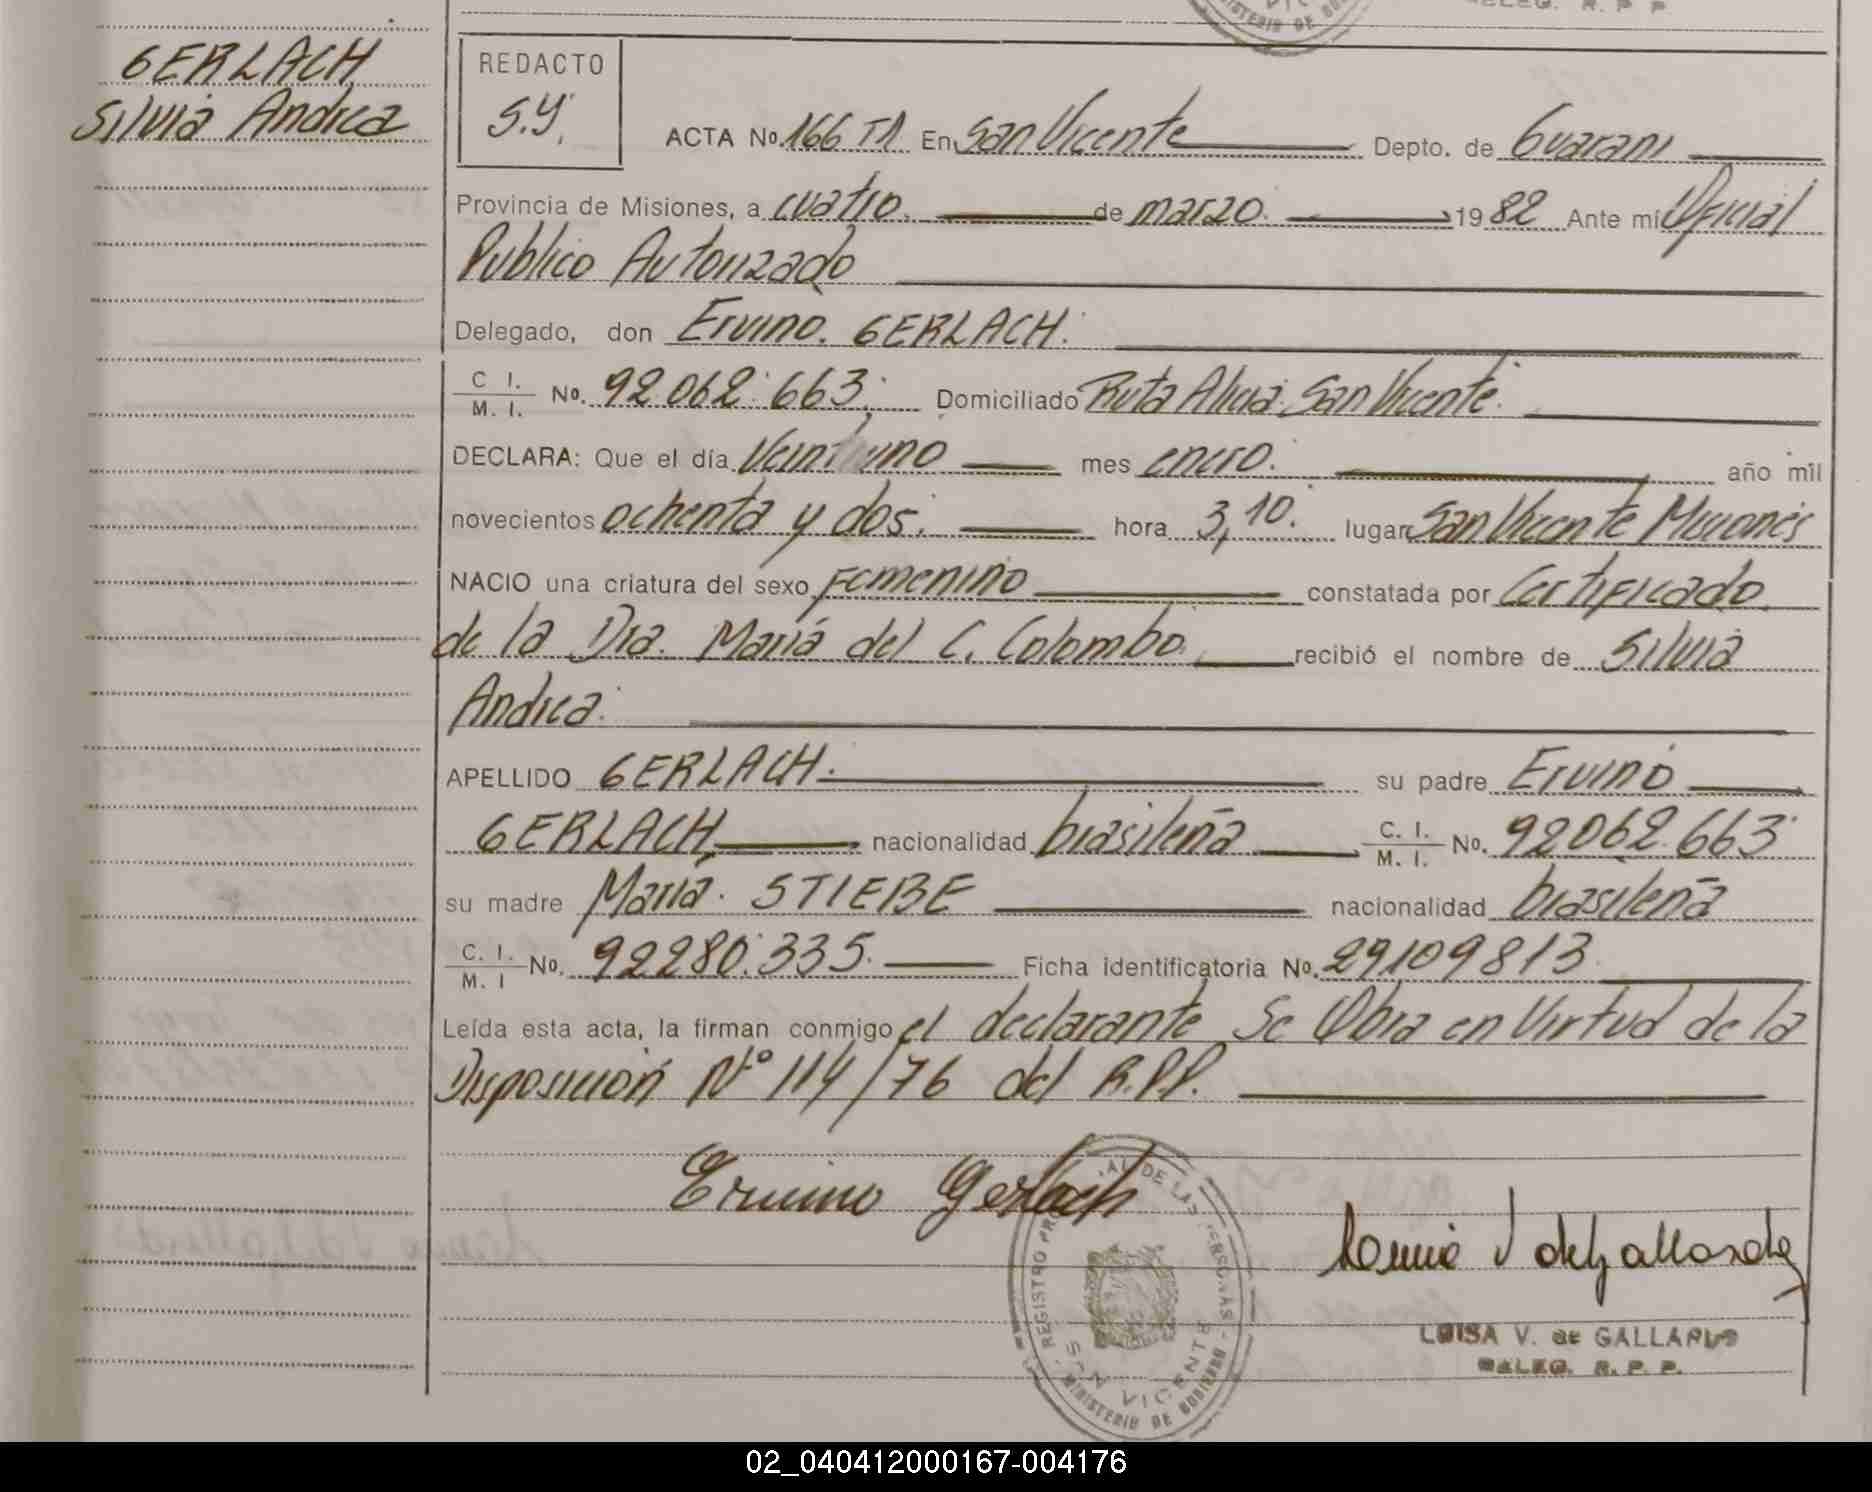 GERLACH
Silvia Andrea
REDACTO
S.Y.
ACTA No. 166 T1 En San Vicente Depto. de Guarani
Provincia de Misiones, a cuatro. de marzo. 1982 Ante mi Oficial
Publico Autorizado
Delegado, don Ervino. GERLACH.
C I. / M. I. No. 92.062.663. Domiciliado Ruta Alicia. San Vicente.
DECLARA: Que el día Veintiuno mes enero. año mil
novecientos ochenta y dos. hora 3,10. lugar San Vicente Misiones
NACIO una criatura del sexo Femenino constatada por Certificado
de la Dra. María del C. Colombo. recibió el nombre de Silvia
Andrea.
APELLIDO GERLACH. su padre Ervino
GERLACH nacionalidad brasileña C. I. / M. I. No. 92.062.663
su madre María. STIEBE nacionalidad brasileña
C. I. / M. I No. 92280.335. Ficha identificatoria No. 29109813
Leída esta acta, la firman conmigo el declarante Se Obra en Virtud de la
Disposición Nº 114/76 del R.P.P.
Ervino Gerlach
REGISTRO DE LAS PERSONAS - MINISTERIO DE GOBIERNO
SAN VICENTE
LUISA V. de GALLARDO
DELEG. R. P. P.
02_040412000167-004176